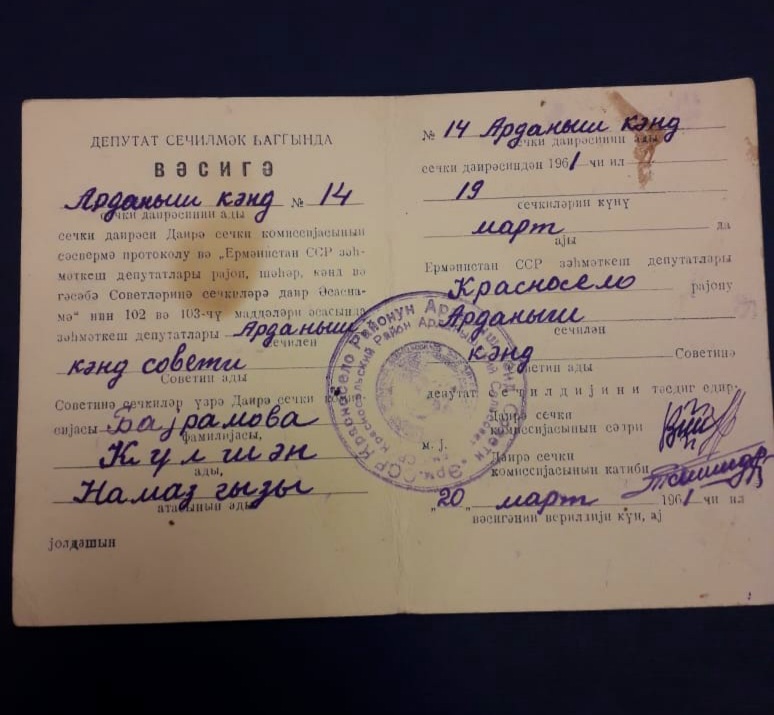 ДЕПУТАТ СЕЧИЛМӘК ҺАГГЫНДА
ВӘСИГӘ
Арданыш кәнд № 14
сечки даирәсинин ады
сечки даирәси Даирә сечки комиссијасынын
сәсвермә протоколу вә „Ермәнистан ССР зәһ-
мәткеш депутатлары рајон, шәһәр, кәнд вә
гәсәбә Советләринә сечкиләрә даир Әсаснамә
мә“ нин 102 вә 103-чү маддәләри әсасында
зәһмәткеш депутатлары Арданыш
сечилен
кәнд совети
Советин ады
Советинә сечкиләр үзрә Даирә сечки комис-
сијасы Бајрамова
фамилијасы,
Күлшән
ады,
Намаз гызы
атасынын ады
јолдашын
№ 14 Арданыш кәнд
сечки даирәсинин ады
сечки даирәсиндән 1961 чи ил
19
сечкиләрин күнү
март да
ајы
Ермәнистан ССР зәһмәткеш депутатлары
Красносело рајону
Арданыш
сечилән
кәнд Советинә
Советин ады
депутат сечилдијини тәсдиг едир.
Даирә сечки
комиссијасынын сәдри
м. ј.
Даирә сечки
комиссијасынын катиби
„20 „ март 1961 чи ил
вәсигәнин верилдији күн, ај